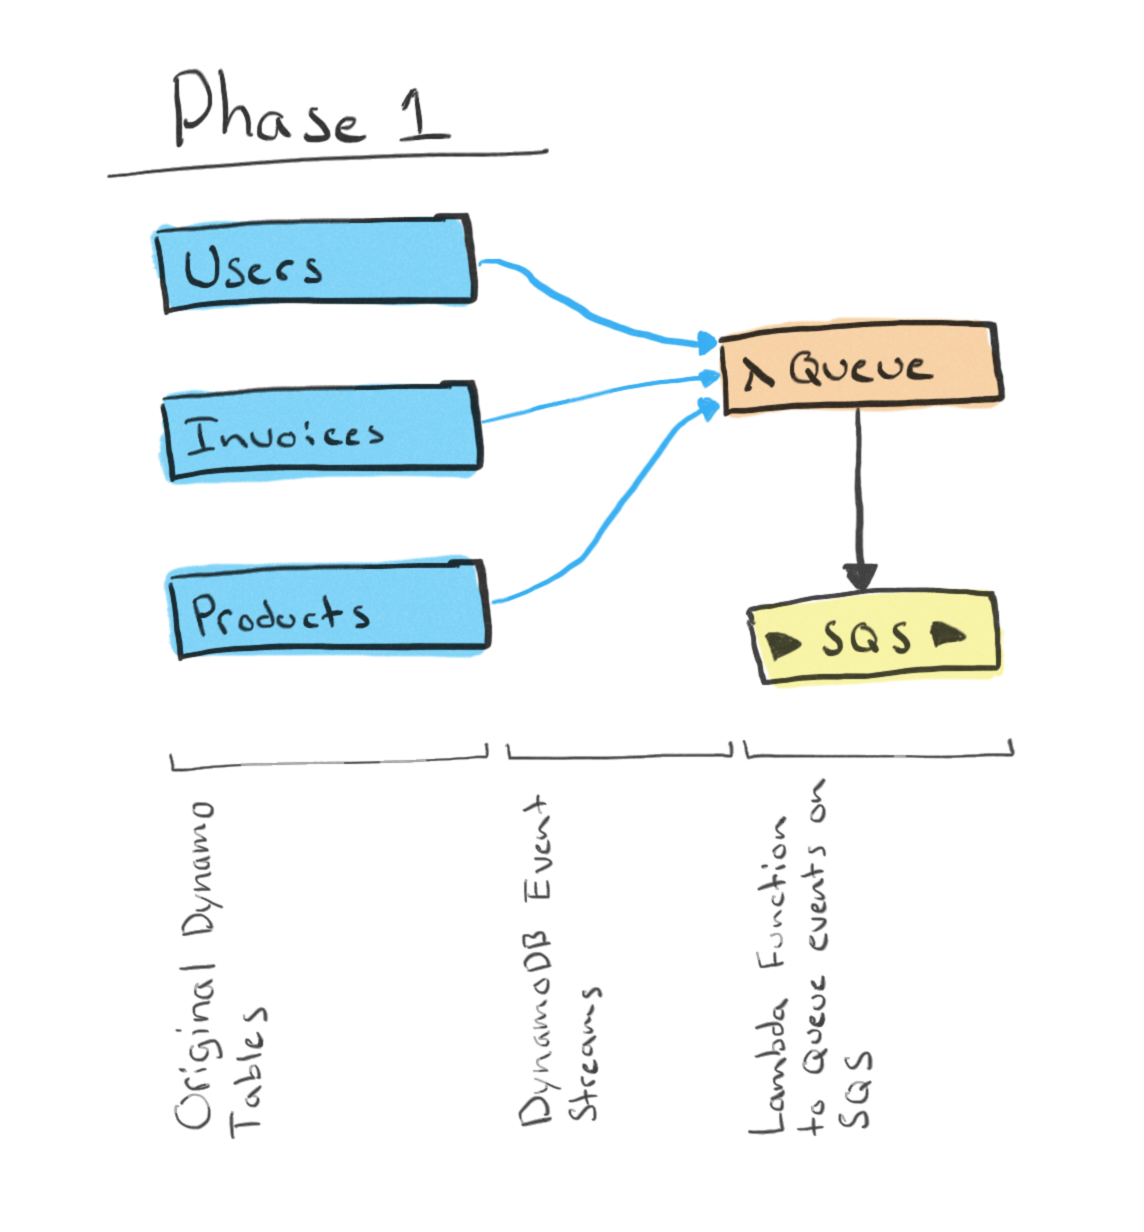 Phase 1
Users
Invoices
Products
λ Queue
SQS
Original Dynamo
Tables
DynamoDB Event
Streams
Lambda Function
to Queue events on
SQS